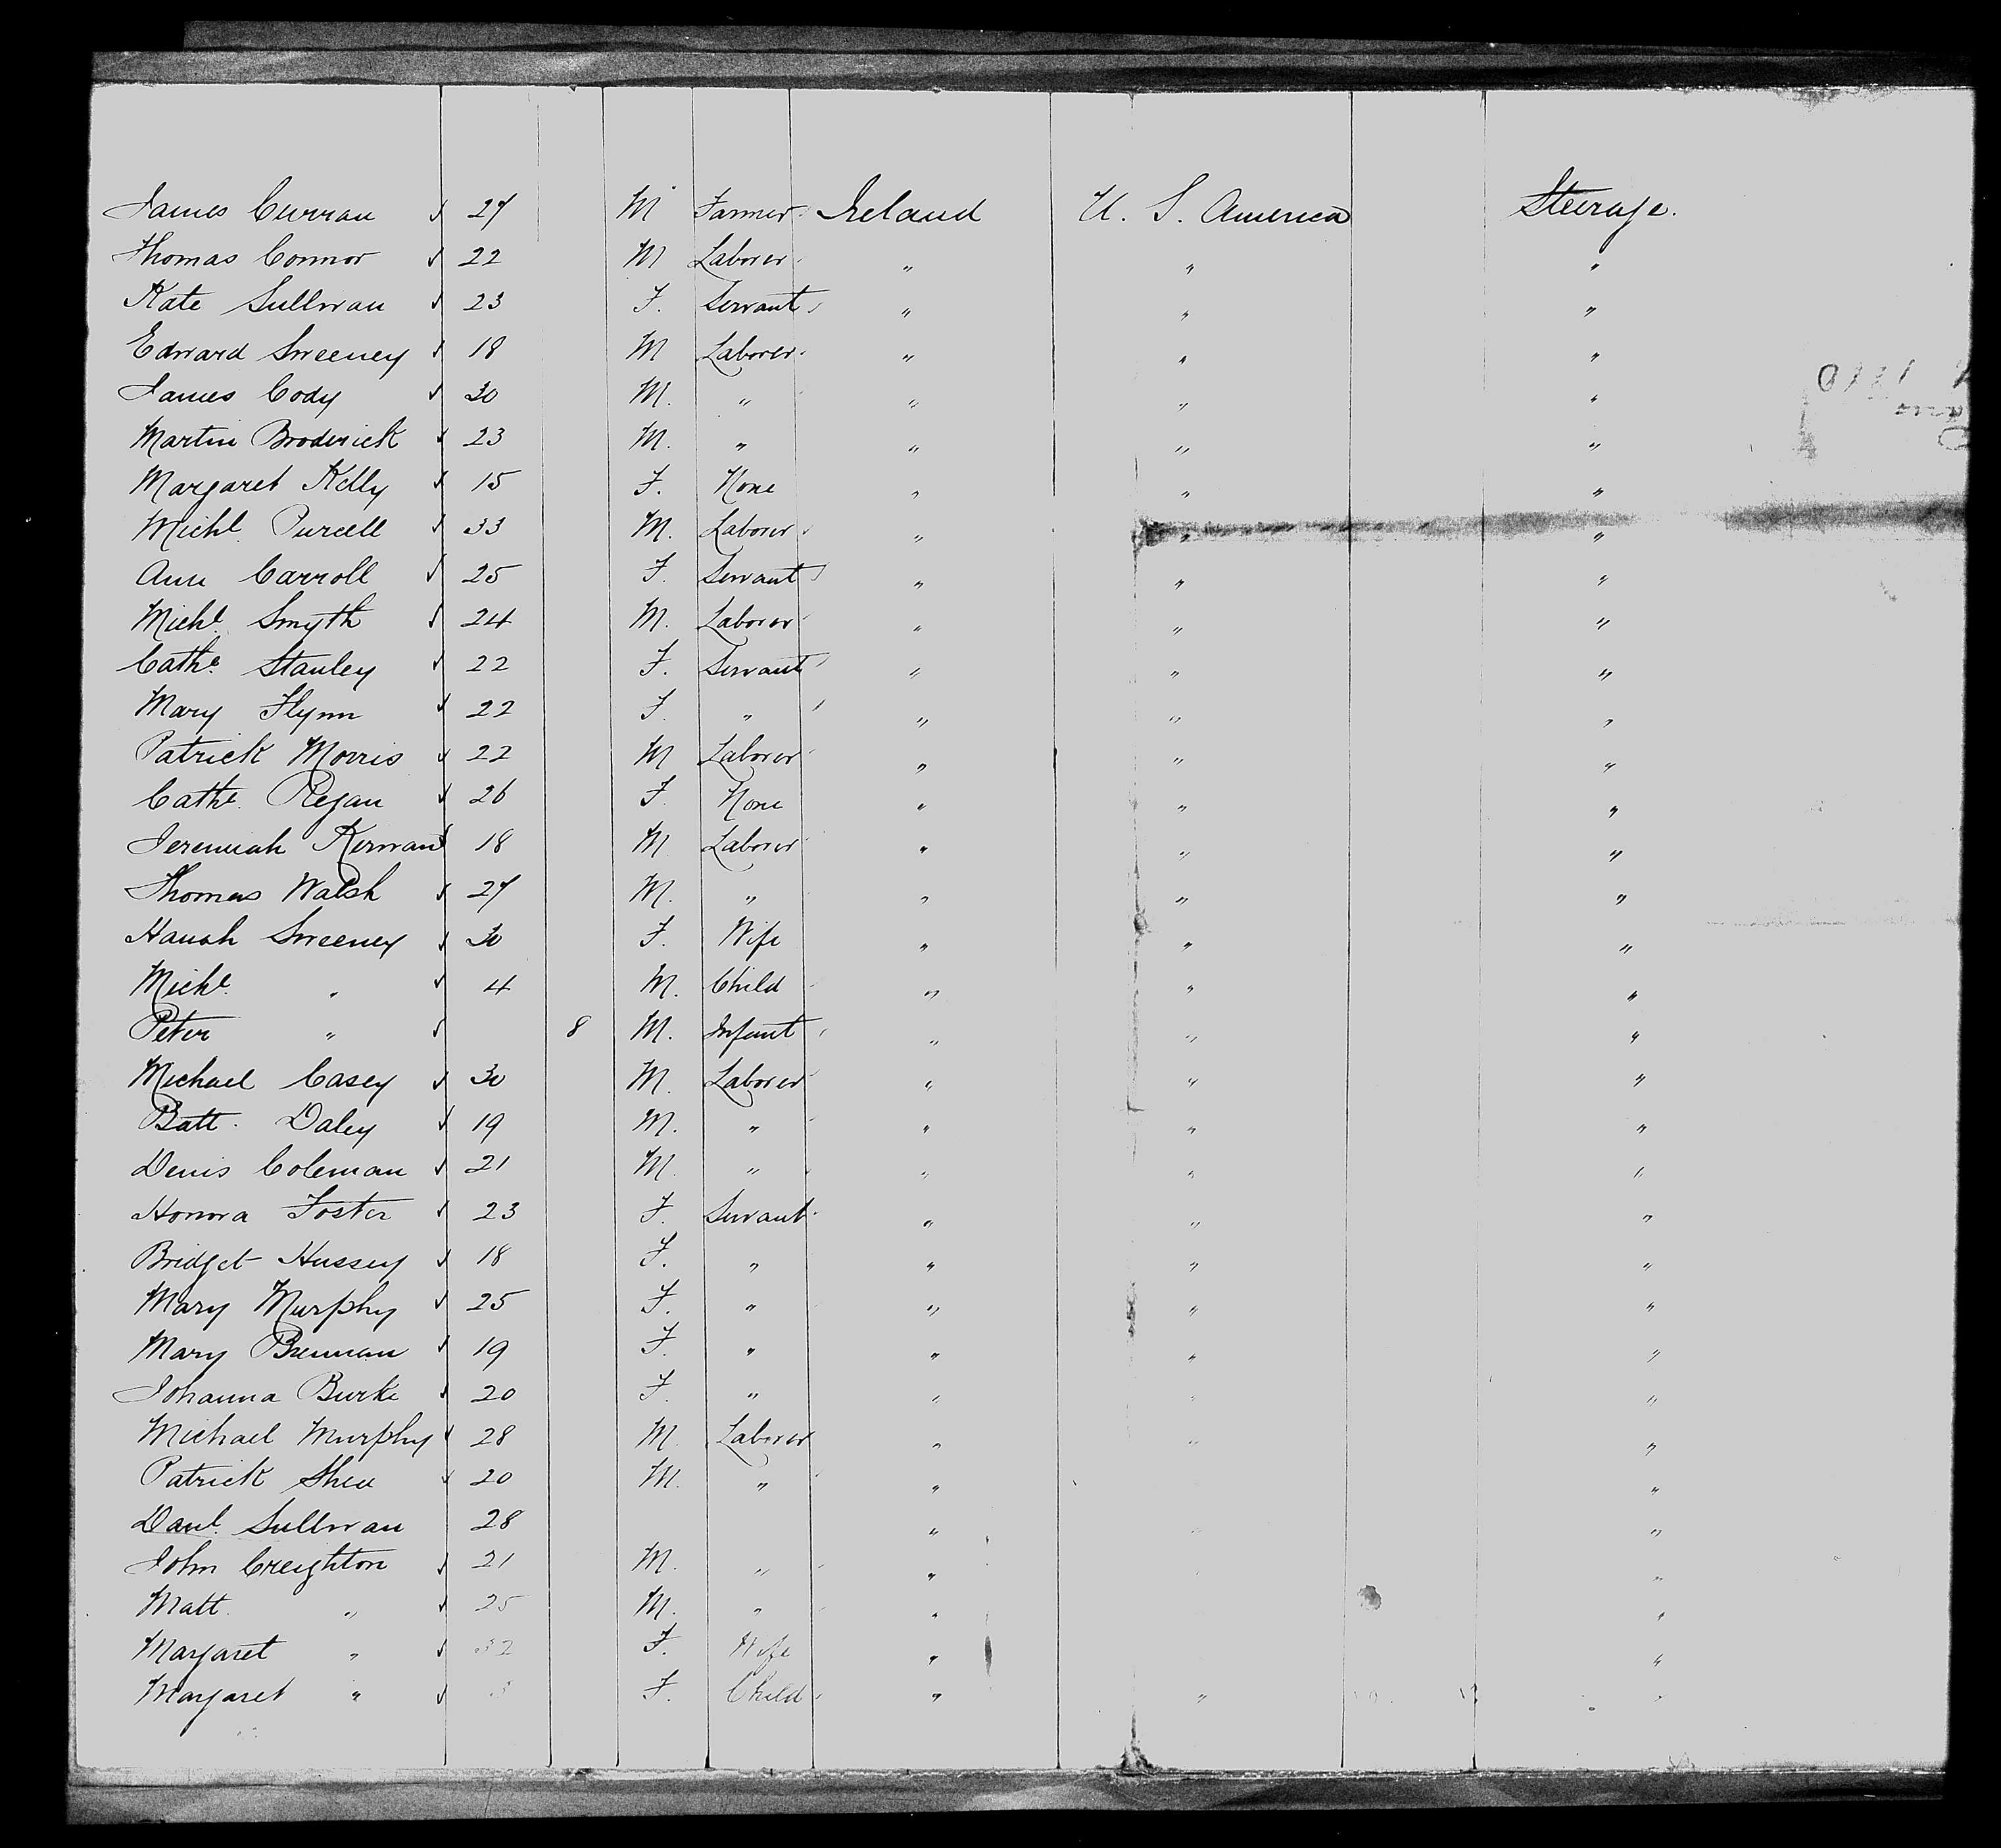 James Curran 27 M Farmer Ireland U. S. America Steerage.
Thomas Connor 22 M Laborer " " "
Kate Sullivan 23 F. Servant " " "
Edward Sweeney 18 M Laborer " " "
James Cody 30 M. " " " "
Martin Broderick 23 M. " " " "
Margaret Kelly 15 F. None " " "
Michl. Purcell 33 M. Laborer " " "
Ann Carroll 25 F. Servant " " "
Michl. Smyth 24 M. Laborer " " "
Cathe. Stanley 22 F. Servant " " "
Mary Flynn 22 F. " " " "
Patrick Morris 22 M Laborer " " "
Cathe. Regan 26 F. None " " "
Jeremiah Kerwan 18 M Laborer " " "
Thomas Walsh 27 M. " " " "
Hanah Sweeney 30 F. Wife " " "
Michl. " 4 M. Child " " "
Peter " 8 M. Infant " " "
Michael Casey 30 M. Laborer " " "
Batt. Daley 19 M. " " " "
Denis Coleman 21 M. " " " "
Honora Foster 23 F. Servant " " "
Bridget Hussey 18 F. " " " "
Mary Murphy 25 F. " " " "
Mary Brennan 19 F. " " " "
Johanna Burke 20 F. " " " "
Michael Murphy 28 M. Laborer " " "
Patrick Shea 20 M. " " "
Danl. Sullivan 28 " "
John Creighton 21 M. " " "
Matt. " 25 M. " " "
Margaret " 32 F. Wife " "
Margaret " 3 F. Child " " "